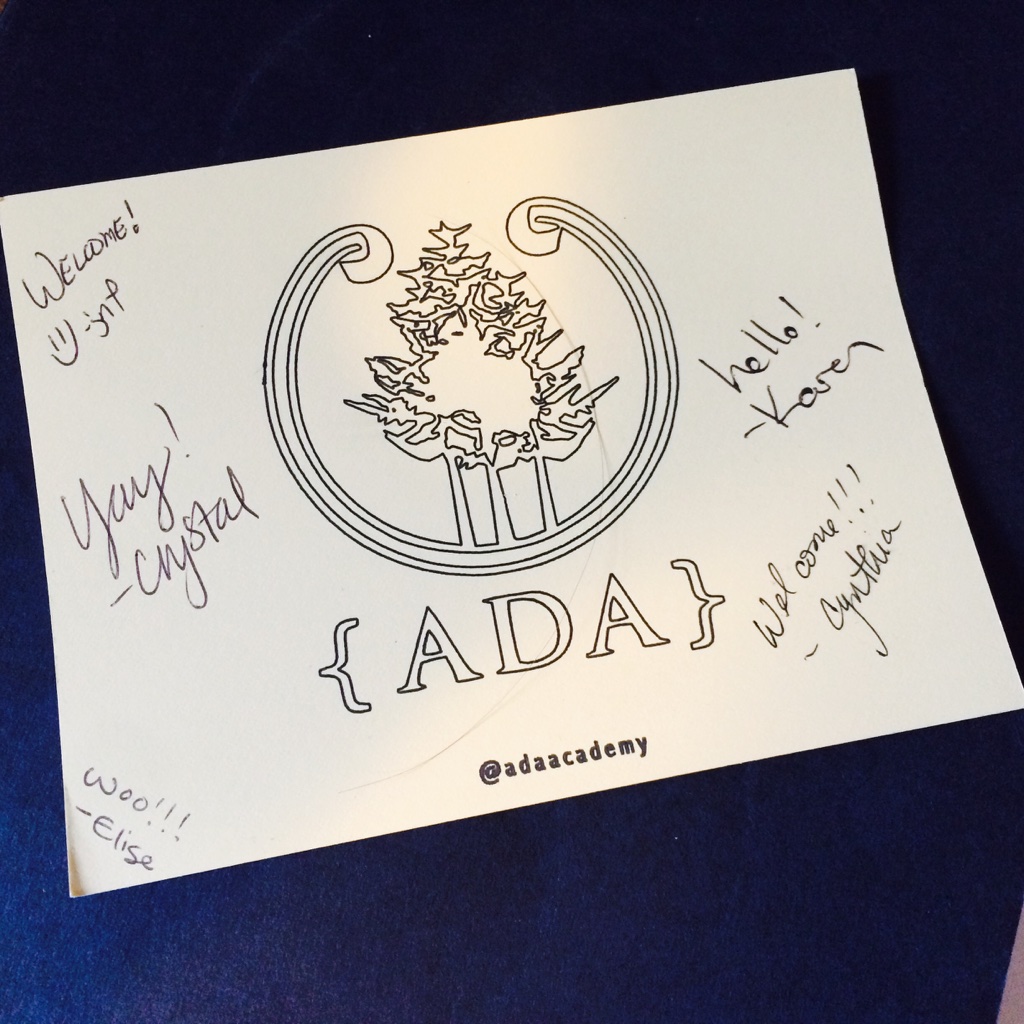 WELCOME!
:) -jnf
Yay!
-crystal
Woo!!!
-Elise
{ADA}
@adaacademy
hello!
-Karen
Welcome!!!
- Cynthia